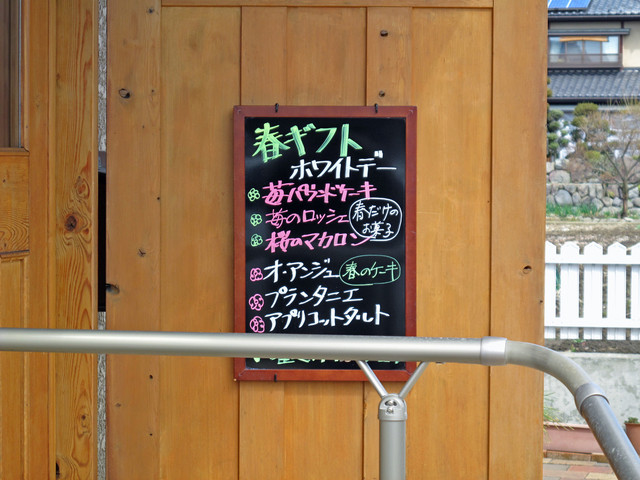 春ギフト
ホワイトデー
苺パウンドケーキ
苺のロッシェ
春だけの
お菓子
桜のマカロン
オ・アンジュ
春のケーキ
プランタニエ
アプリコットタルト